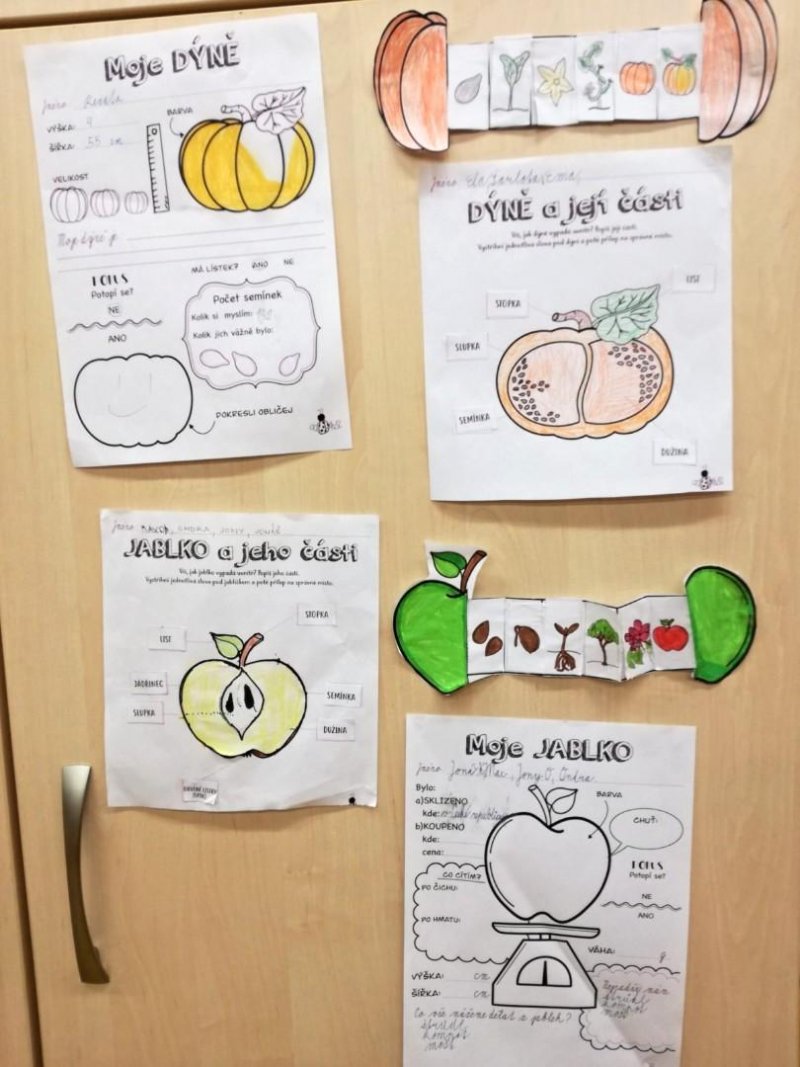 Moje DÝNĚ
Jméno
VÝŠKA: 4
ŠÍŘKA: 55 cm
BARVA
VELIKOST
MÁ LÍSTEK? ANO NE
POKUS
Potopí se?
NE
ANO
Počet semínek
Kolik si myslím:
Kolik jich vážně bylo:
DOKRESLI OBLIČEJ
Jméno Ela,
DÝNĚ a její části
Víš, jak dýně vypadá uvnitř? Popiš její části.
Vystřihni jednotlivá slova pod dýní a poté přilep na správné místo.
LIST
STOPKA
SLUPKA
SEMÍNKA
DUŽINA
Jméno
JABLKO a jeho části
Víš, jak jablko vypadá uvnitř? Popiš jeho části.
Vystřihni jednotlivá slova pod jablíčkem a poté přilep na správné místo.
STOPKA
LIST
JADŘINEC
SEMÍNKA
SLUPKA
DUŽINA
Moje JABLKO
Jméno Jony.O, Ondra
Bylo:
a)SKLIZENO
kde:
b)KOUPENO
kde:
cena:
BARVA
CHUŤ:
CO CÍTÍM?
PO ČICHU:
PO HMATU:
POKUS
Potopí se?
NE
ANO
VÁHA: g
VÝŠKA: cm
ŠÍŘKA: cm
Co vše můžeme dělat z jablek?
štrúdl
kompot
mošt
štrúdl
kompot
mošt